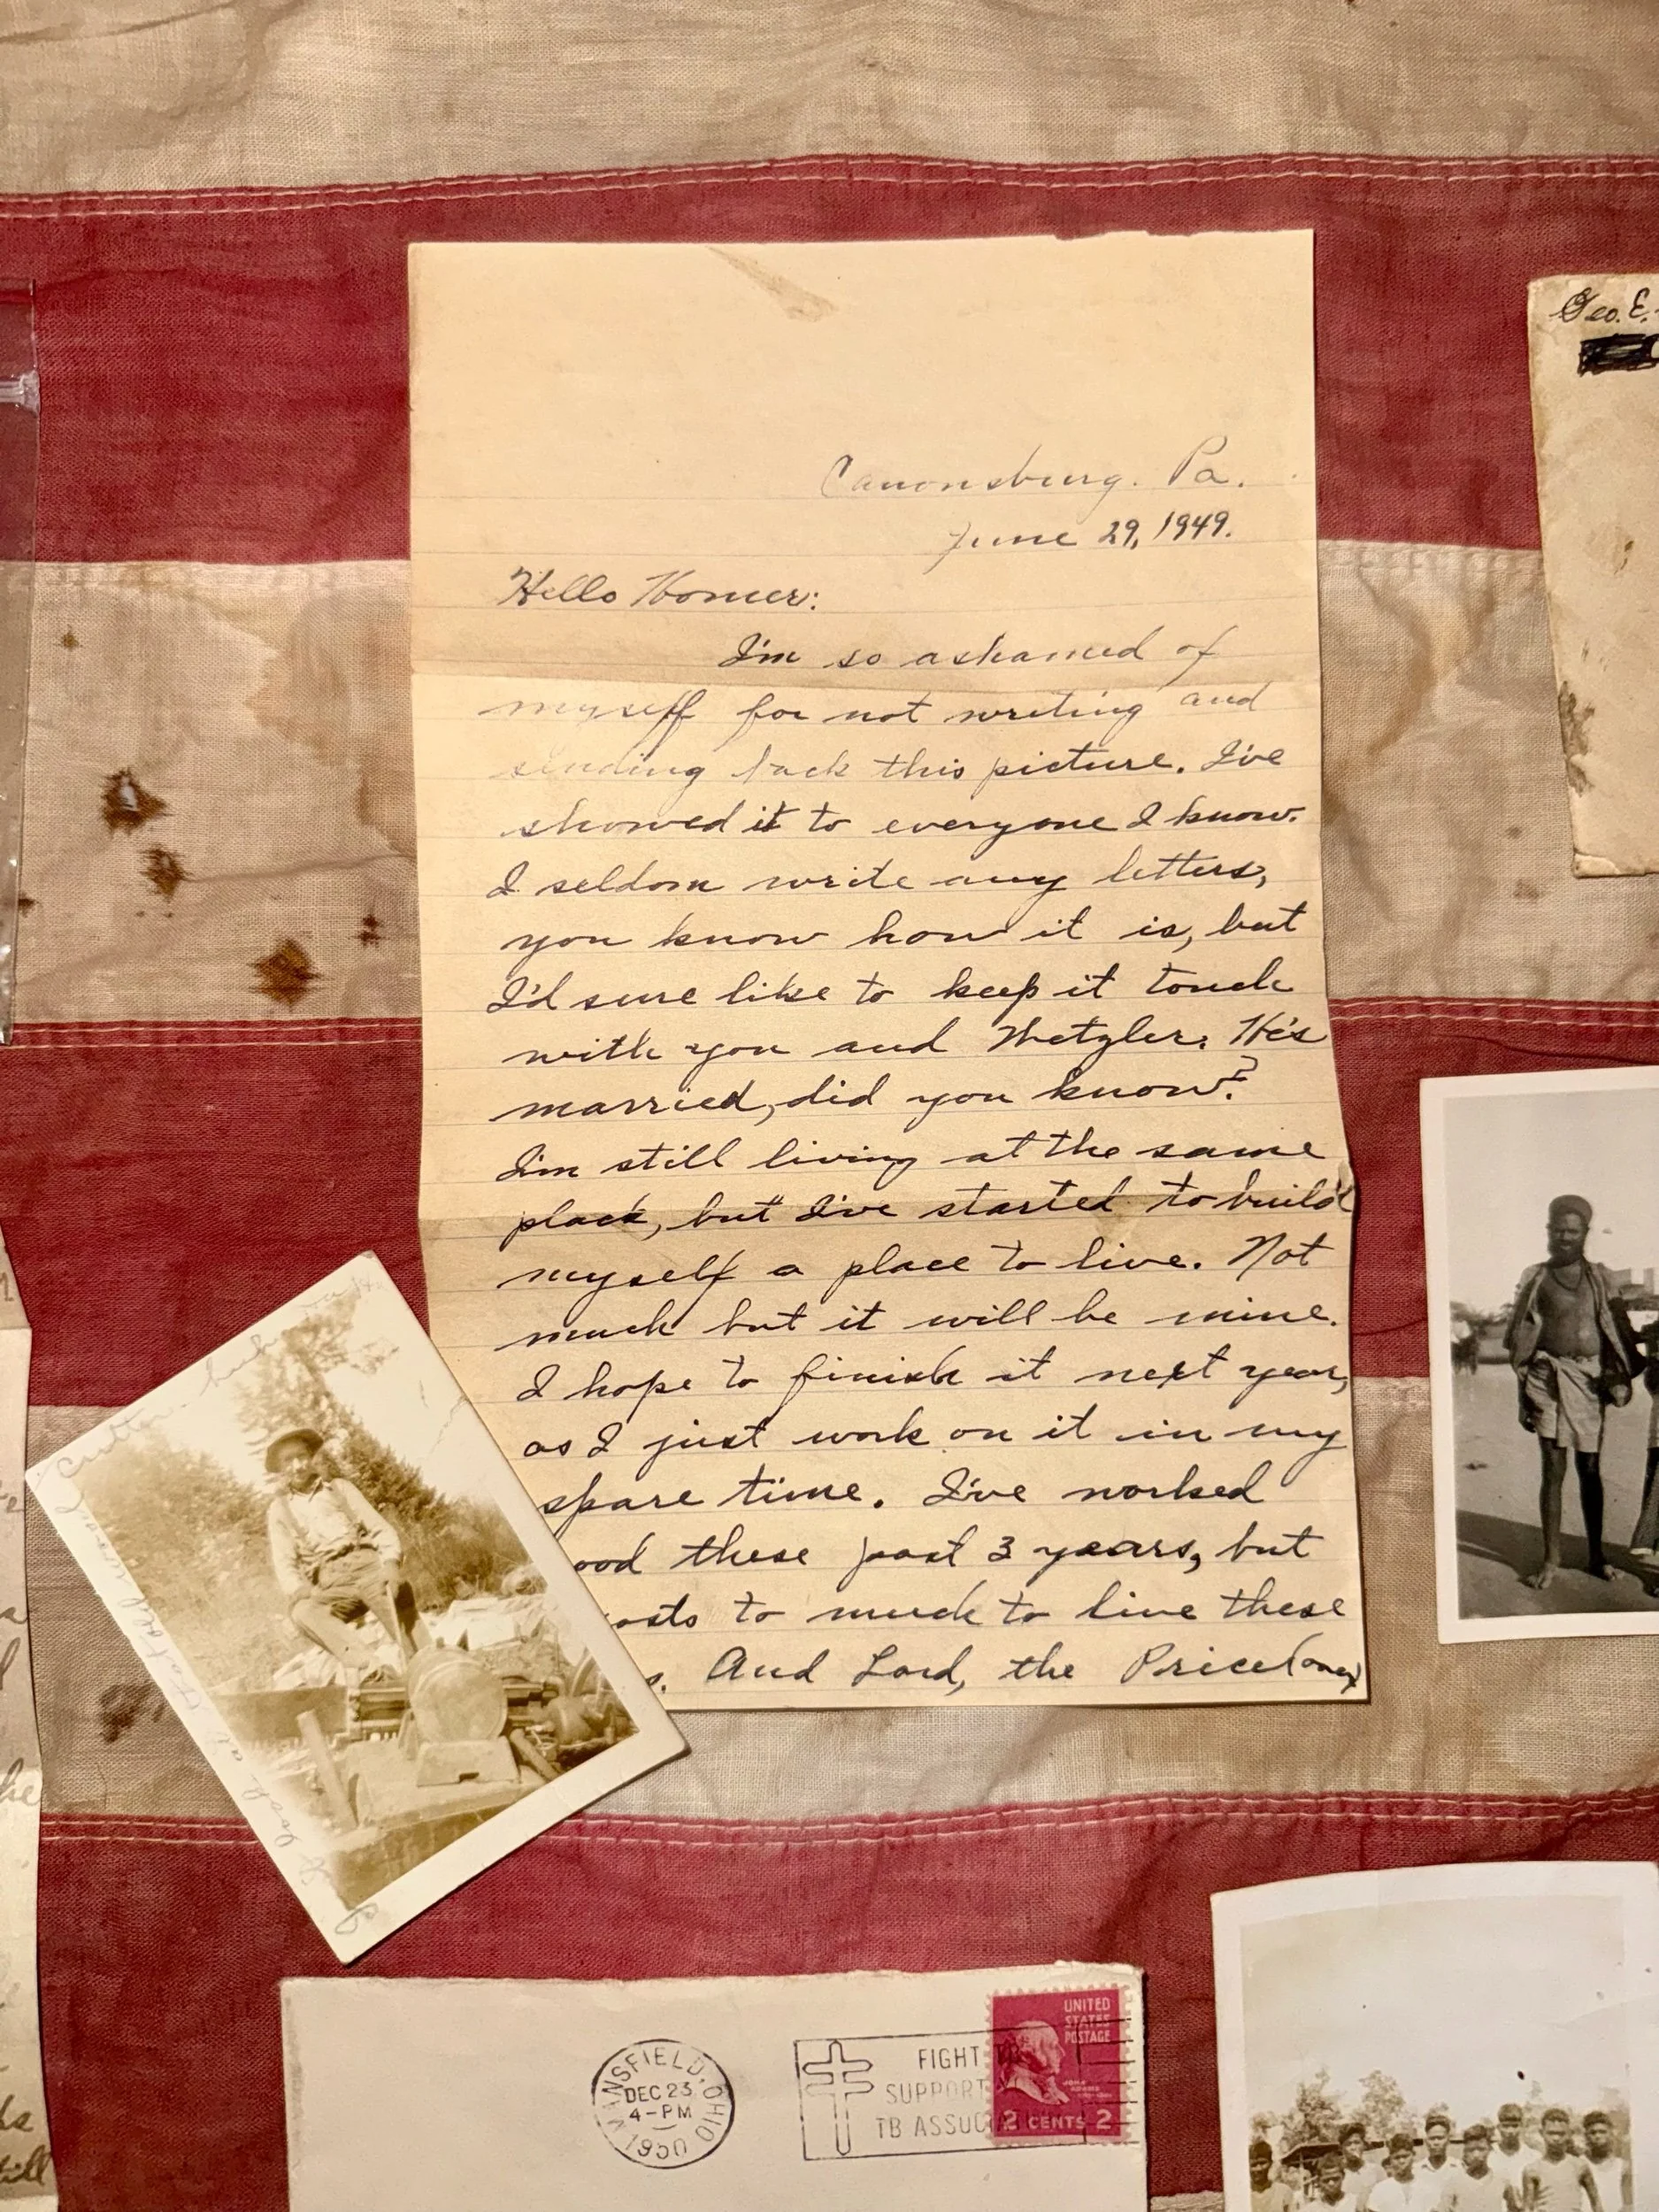 Canonsburg. Pa.
June 29, 1949.
Hello Homer:
I'm so ashamed of
myself for not writing and
sending back this picture. I've
showed it to everyone I know.
I seldom write any letters,
you know how it is, but
I'd sure like to keep it touch
with you and Metzler. He's
married, did you know?
I'm still living at the same
place, but I've started to build
myself a place to live. Not
much but it will be mine.
I hope to finish it next year,
as I just work on it in my
spare time. I've worked
ood these past 3 years, but
osts to much to live these
s. And Lord, the Price (over)
Geo. E.
MANSFIELD, OHIO
DEC 23
4-PM
1950
FIGHT TB
SUPPORT
TB ASSOC
UNITED
STATES
POSTAGE
JOHN
ADAMS
2 CENTS 2